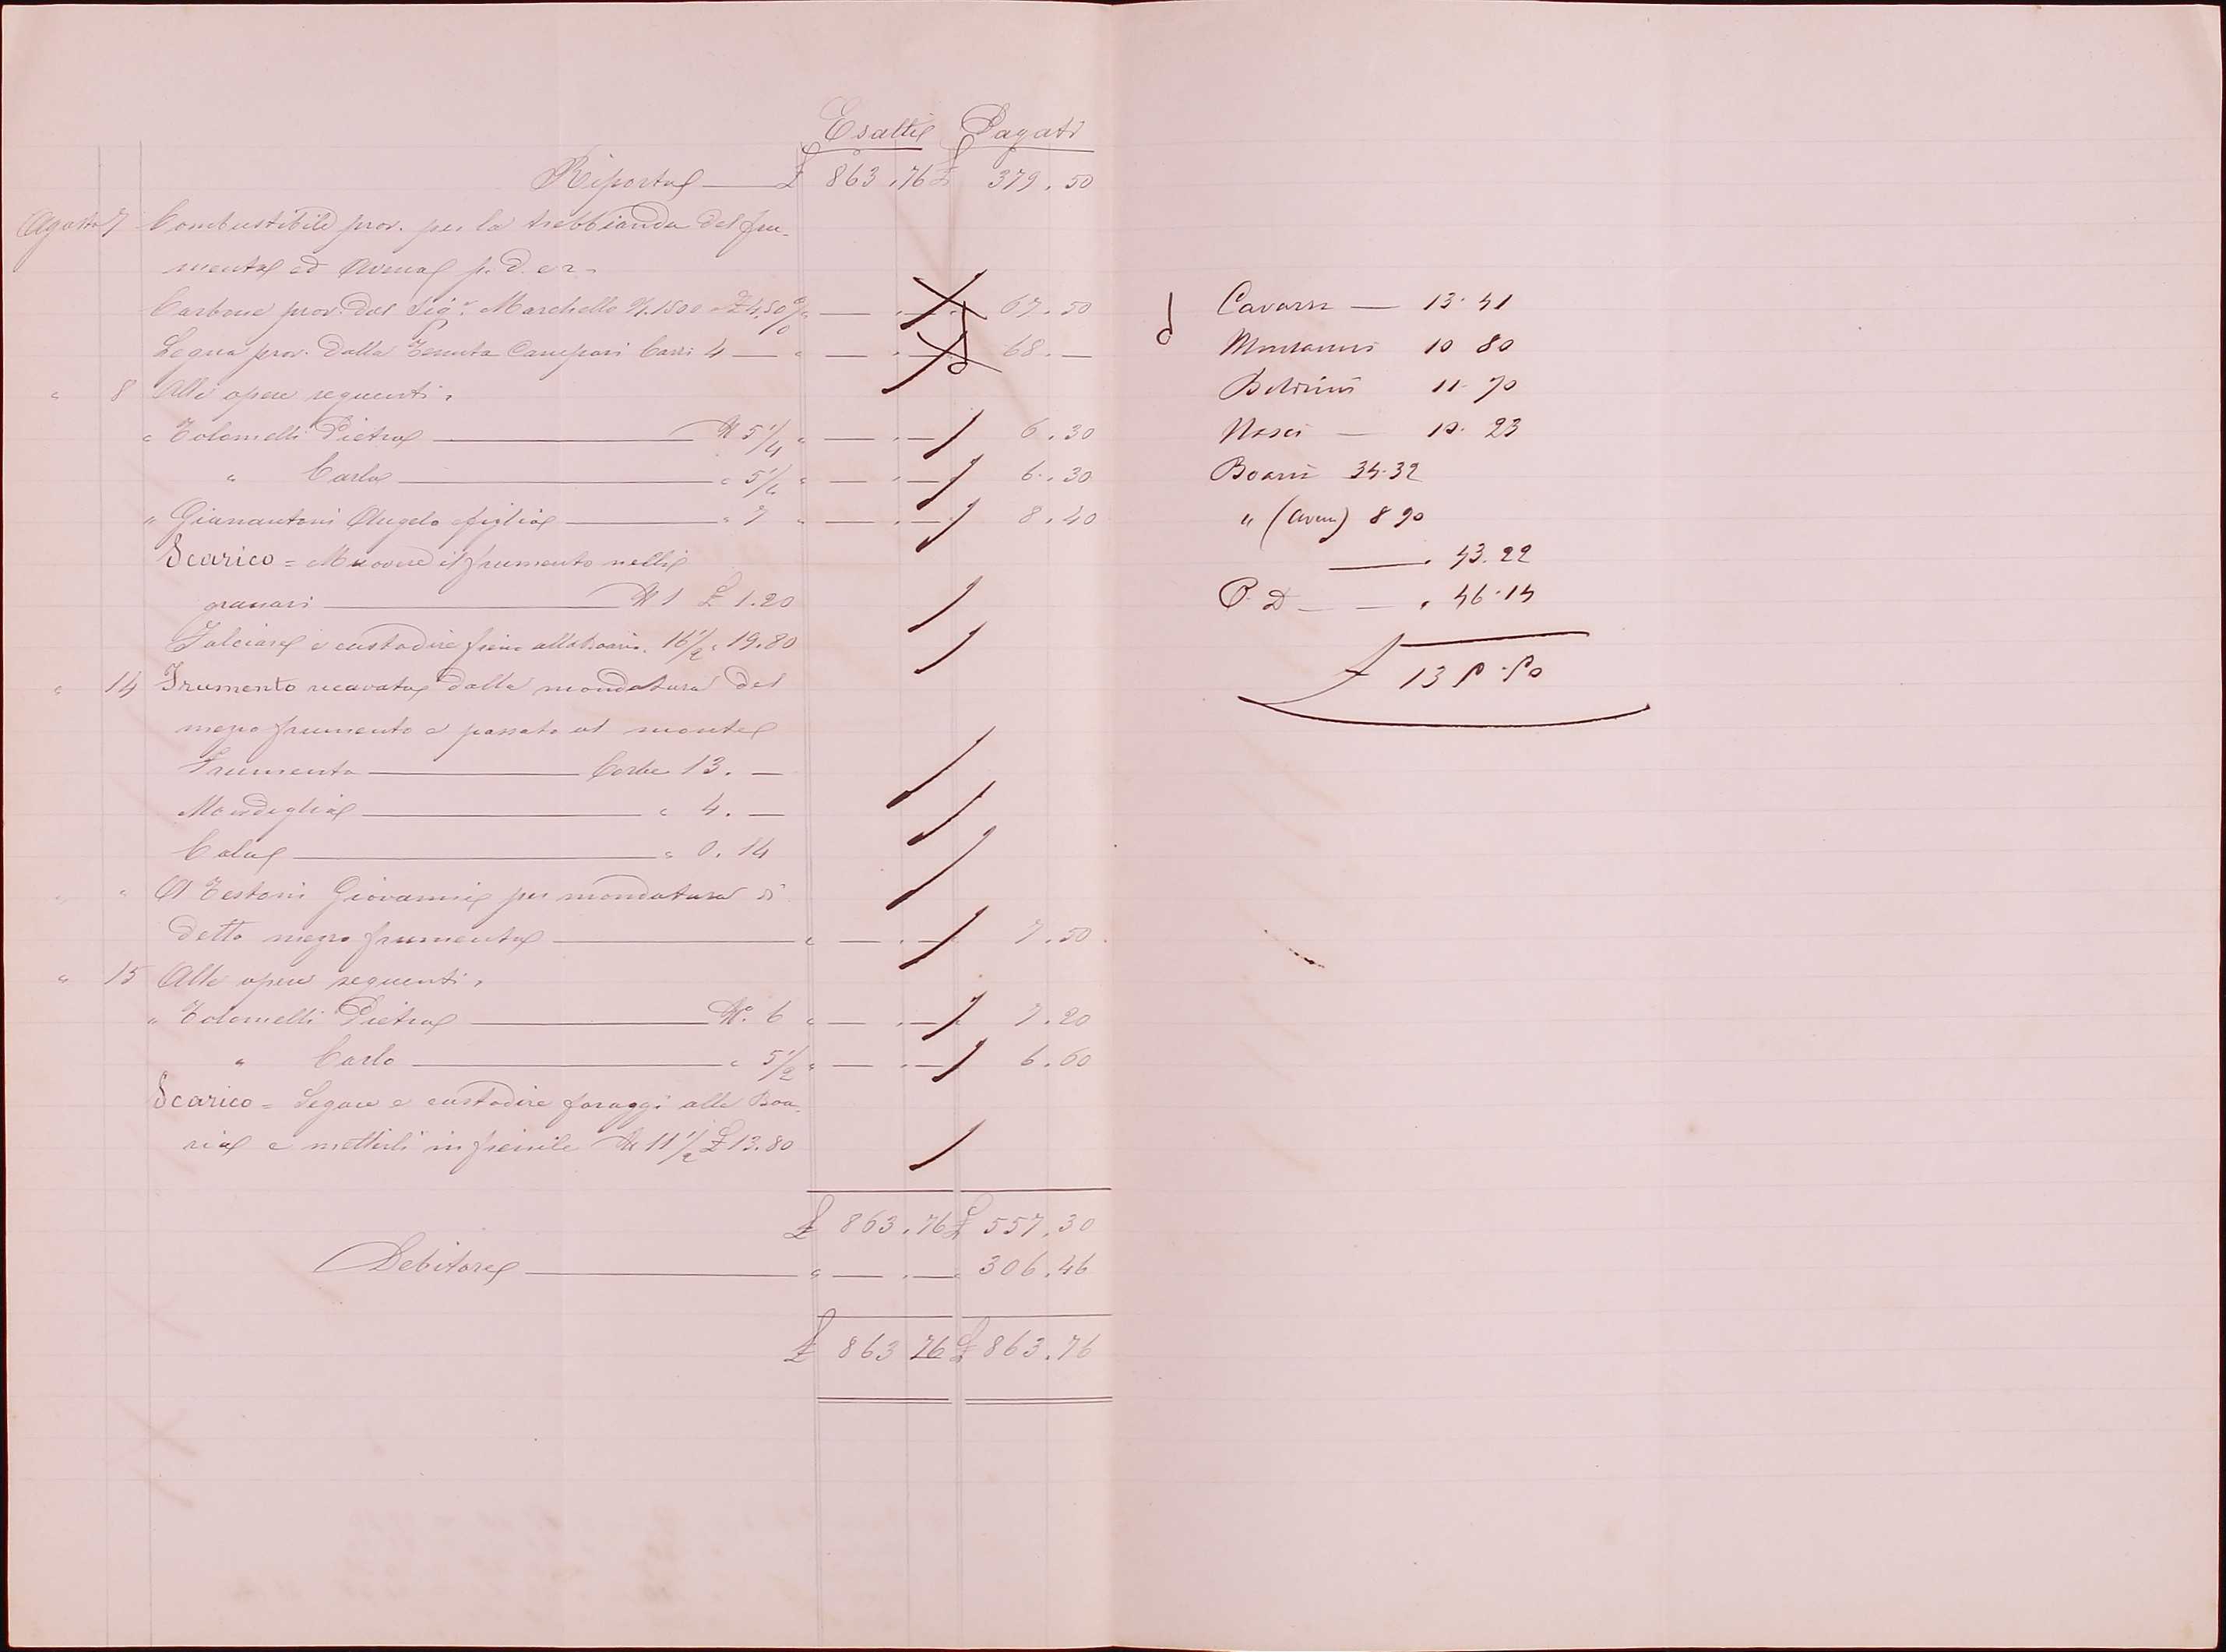 Esatti Pagati
Riporto — £ 863.76 £ 379.50
Agosto 7 Combustibile prov. per la trebbianda del fru-
mento ed Avena p. d. e 2 -
Carbone prov. dal Sigr. Marchello K. 1500 a £ 4,50 % — . — 67.50
Legna prov. dalla Tenuta Campari Carri 4 — " — . — 68. —
" 8 Alle opere seguenti.
" Tolomelli Pietro — N 5 1/4 " — . — 6.30
" Carlo — " 5 1/4 " — . — 6.30
" Gianantoni Angelo e figlio — " 7 " — . — 8.40
Scarico = Muovere il frumento nelli
granari — N 1 £ 1.20
Falciare e custodire fieno alla Boaria. 16 1/2 " 19.80
" 14 Frumento ricavato dalla mondatura del
negro frumento e passato al monte
Frumento — Corbe 13. —
Mondiglia — " 4. —
Calo — " 0.14
" " A Testoni Giovanni per mondatura di
detto negro frumento — " — . — 7.50
" 15 Alle opere seguenti.
" Tolomelli Pietro — No. 6 " — . — 7.20
" Carlo — " 5 1/2 " — . — 6.60
Scarico = Segare e custodire foraggi alle Boa-
rie e metterli in fienile N 11 1/2 £ 13.80
£ 863.76 £ 557.30
Debitore — " — . — 306.46
£ 863 76 £ 863.76
Cavazza — 13.41
Montanari 10 80
Beltrini 11.70
Nasci — 10.23
Boari 34.32
" (Avena) 8 90
— . 43.22
P. D — — . 46.14
£ 135.50